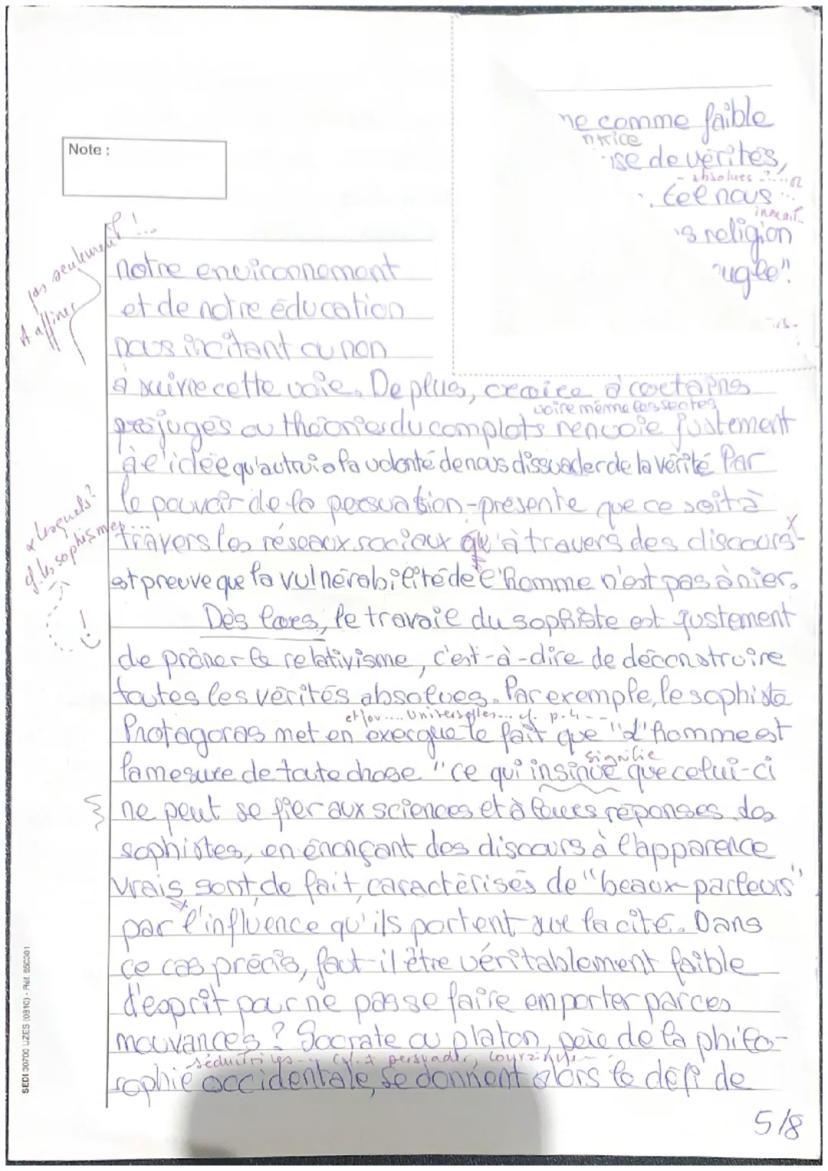 ne comme faible
ntrice
ise de vérités,
absolues ?...
tel nous
s religion
ugle".
Note :
pas seulement !...
A affiner
notre environnement
et de notre éducation
nous incitant ou non
à suivre cette voie. De plus, croire à certains
voire même les sectes
préjugés ou théories du complots renvoie justement
à l'idée qu'autrui a la volonté de nous dissuader de la vérité Par
le pouvoir de la persuation-présente que ce soit à
lesquels ?
cf les sophismes
travers les réseaux sociaux qu'à travers des discours-
est preuve que la vulnérabilité de l'Homme n'est pas à nier.
!
Dès lors, le travail du sophiste est justement
de prôner le relativisme, c'est-à-dire de déconstruire
toutes les vérités absolues. Par exemple, le sophiste
et/ou .... Universelles ... cf. p.4 --
Protagoras met en exergue le fait que "L'Homme est
signifie
la mesure de toute chose "ce qui insinue que celui-ci
ne peut se fier aux sciences et à leurs réponses. Les
sophistes, en énonçant des discours à l'apparence
vrais sont, de fait, caractérisés de "beaux-parleurs"
par l'influence qu'ils portent sur la cité. Dans
ce cas précis, faut-il être véritablement faible
d'esprit pour ne pas se faire emporter par ces
mouvances ? Socrate ou platon, père de la philo-
séductrices persuader
sophie occidentale, se donnent alors le défi de
SEDI 30700 UZES (0810) - Réf. 550301
5/8